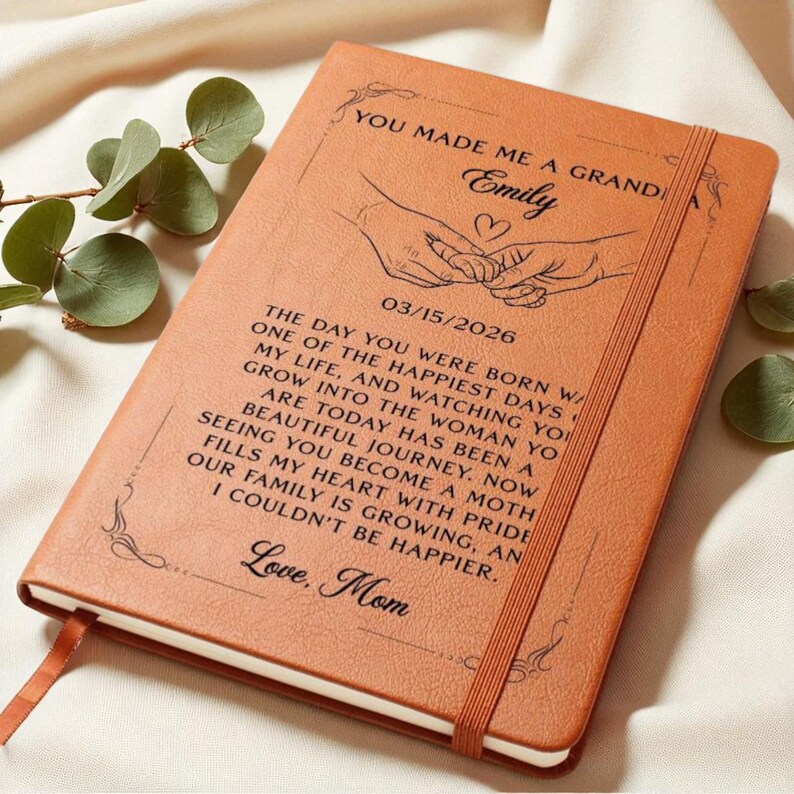 YOU MADE ME A GRAND A
Emily
03/15/2026
THE DAY YOU WERE BORN WA
ONE OF THE HAPPIEST DAYS
MY LIFE, AND WATCHING YO
GROW INTO THE WOMAN YO
ARE TODAY HAS BEEN A
BEAUTIFUL JOURNEY. NOW
SEEING YOU BECOME A MOTH
FILLS MY HEART WITH PRIDE
OUR FAMILY IS GROWING, AN
I COULDN'T BE HAPPIER.
Love, Mom